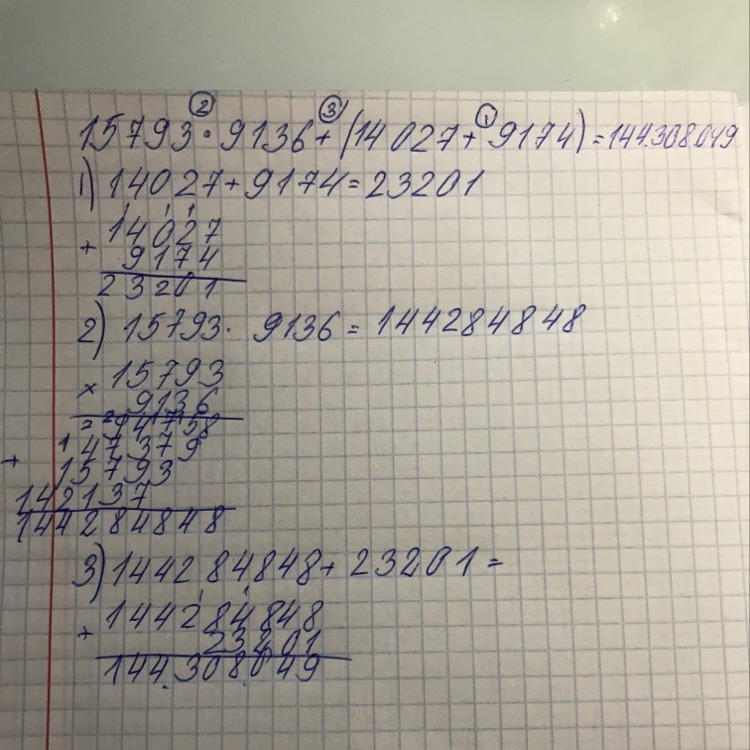 ② ③ ①
15793 · 9136 + (14027 + 9174) = 144.308.049
1) 14027 + 9174 = 23201
1 1 1
14027
+
9174
23201
2) 15793 · 9136 = 144284848
15793
×
9136
94758
47379
+
15793
142137
144284848
3) 144284848 + 23201 =
1 1
144284848
+
23201
144.308.049